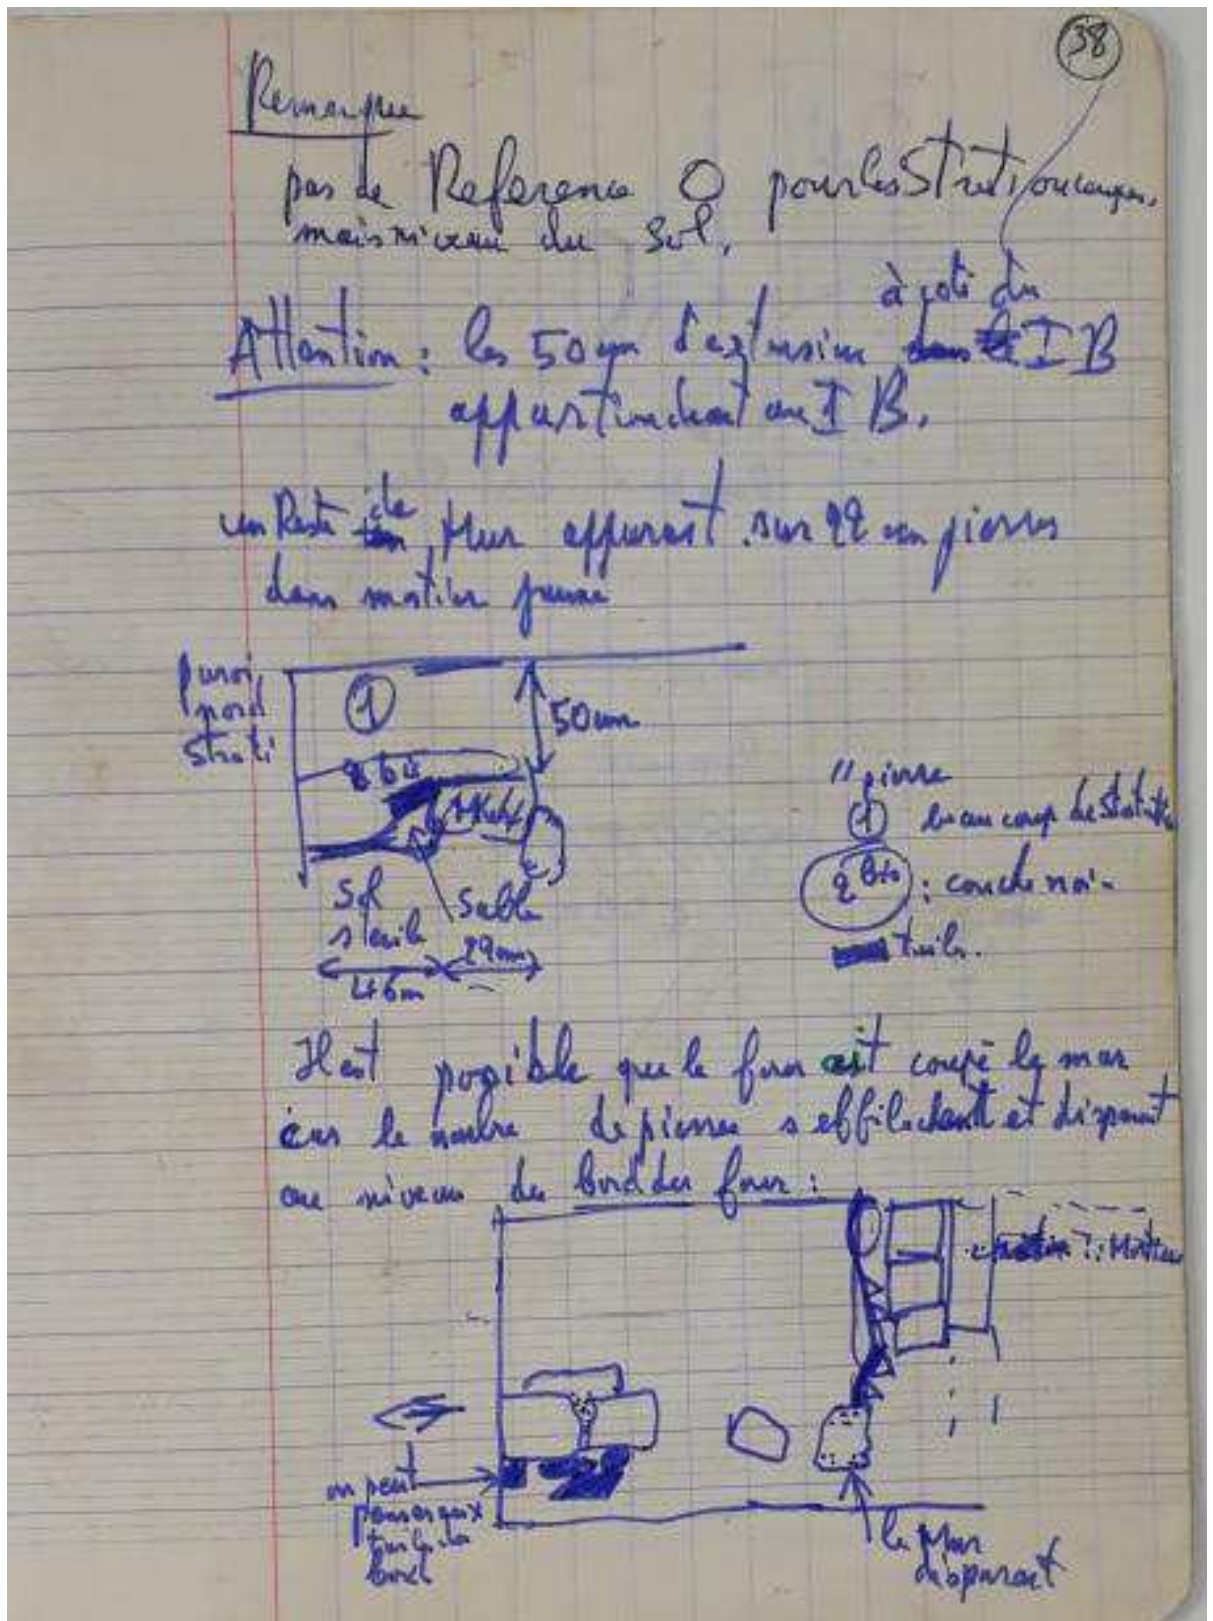 38
Remarque
pas de Reference O pour les Strati
mais niveau du sol.
à coté du
Attention : les 50 cm d'extension I B
appartiendront au I B.
un Reste de Mur apparait sur 22 cm pierres
dans mortier jaune
paroi
nord
Strati
1
50 cm
2 bis
Sol
sterile
Sable
29 cm
46 m
pierre
1 beaucoup de
2 bis : couche noi-
tuile.
Il est possible que le four ait coupé le mur
car le nombre de pierres s'effilochent et disparait
au niveau du bord du four :
on peut
penser qu'x
tuiles
bord
le Mur
disparait